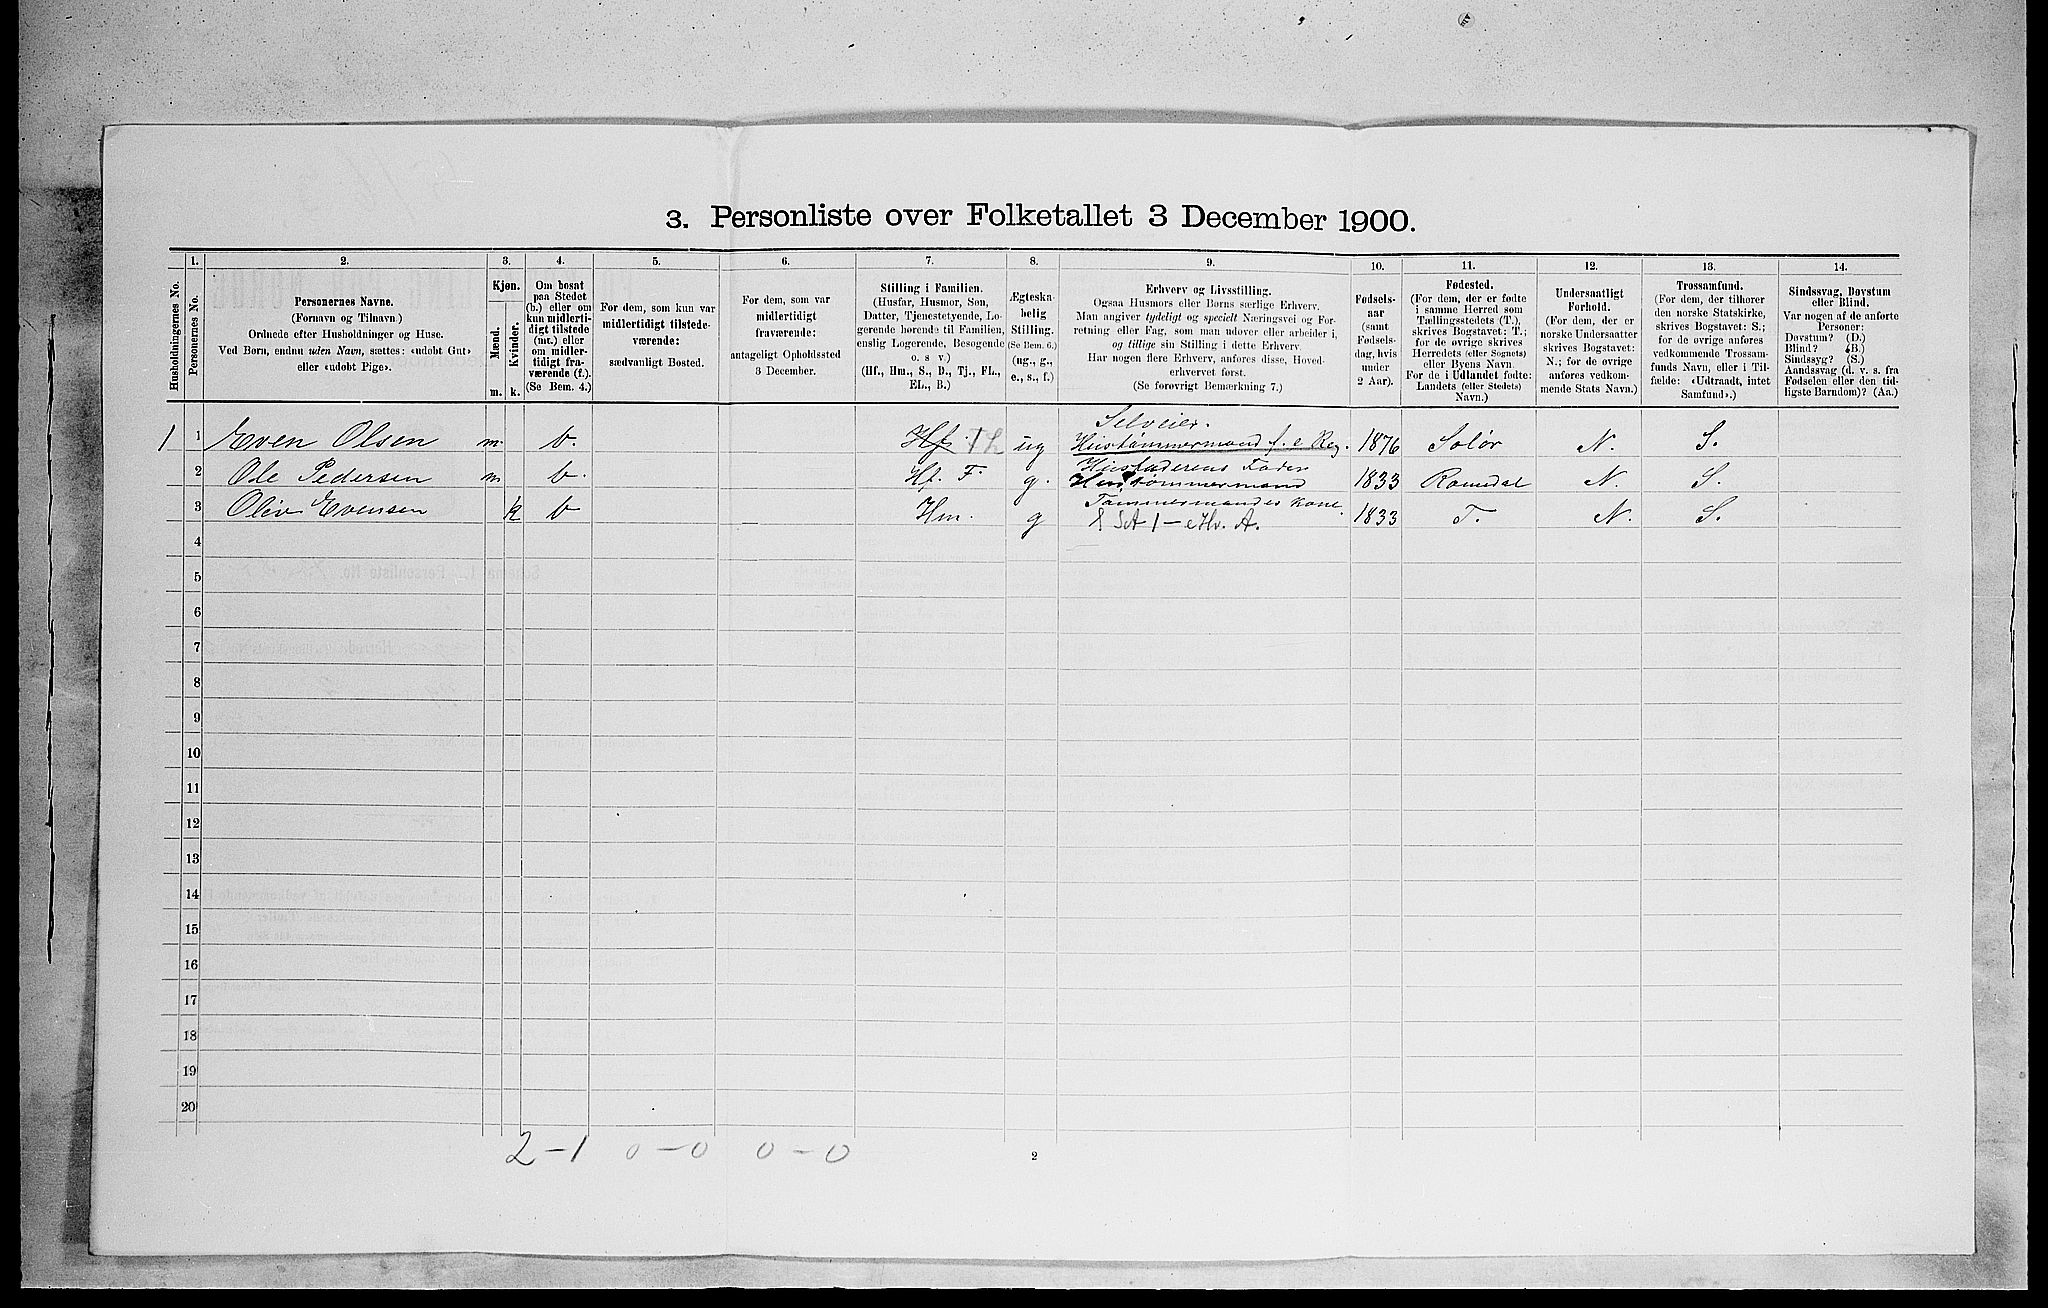 3. Personliste over Folketallet 3 December 1900.
Husholdningernes No.
1.
Personernes No.
2.
Personernes Navne.
(Fornavn og Tilnavn.)
Ordnede efter Husholdninger og Huse.
Ved Børn, endnu uden Navn, sættes: «udøbt Gut»
eller «udøbt Pige».
3.
Kjøn.
Mænd.
Kvinder.
m.
k.
4.
Om bosat
paa Stedet
(b.) eller om
kun midlerti-
digt tilstede
(mt.) eller
om midler-
tidigt fra-
værende (f.).
(Se Bem. 4.)
5.
For dem, som kun var
midlertidigt tilstede-
værende:
sædvanligt Bosted.
6.
For dem, som var
midlertidigt
fraværende:
antageligt Opholdssted
3 December.
7.
Stilling i Familien.
(Husfar, Husmor, Søn,
Datter, Tjenestetyende, Lo-
gerende hørende til Familien,
enslig Logerende, Besøgende
o. s v.)
(Hf., Hm., S., D., Tj., FL.,
EL., B.)
8.
Ægteska-
belig
Stilling.
(Se Bem. 6.)
(ug., g.,
e., s., f.)
9.
Erhverv og Livsstilling.
Ogsaa Husmors eller Børns særlige Erhverv.
Man angiver tydeligt og specielt Næringsvei og For-
retning eller Fag, som man udøver eller arbeider i,
og tillige sin Stilling i dette Erhverv.
Har nogen flere Erhverv, anføres disse, Hoved-
erhvervet først.
(Se forøvrigt Bemærkning 7.)
10.
Fødsels-
aar
(samt
Fødsels-
dag, hvis
under
2 Aar).
11.
Fødested.
(For dem, der er fødte
i samme Herred som
Tællingsstedets (T.),
skrives Bogstavet: T.;
for de øvrige skrives
Herredets (eller Sognets)
eller Byens Navn.
For de i Udlandet fødte:
Landets (eller Stedets)
Navn.)
12.
Undersaatligt
Forhold.
(For dem, der er
norske Undersaatter
skrives Bogstavet:
N.; for de øvrige
anføres vedkom-
mende Stats Navn.)
13.
Trossamfund.
(For dem, der tilhører
den norske Statskirke,
skrives Bogstavet: S.;
for de øvrige anføres
vedkommende Trossam-
funds Navn, eller i Til-
fælde: «Udtraadt, intet
Samfund».)
14.
Sindssvag, Døvstum
eller Blind.
Var nogen af de anførte
Personer:
Døvstum? (D.)
Blind? (B.)
Sindssyg? (S.)
Aandssvag (d. v. s. fra
Fødselen eller den tid-
ligste Barndom)? (Aa.)
Selveier.
1 1 Even Olsen m. b. Hf. ug Hustømmermand f. e. Reg. 1876 Solør N. S.
Husfaderens Fader
2 Ole Pedersen m b. Hf. F. g. Hustømmermand 1833 Romedal N. S.
Tømmermandes Kone.
3 Oliv Evensen k b Hm. g 1833 T. N. S.
4
5
6
7
8
9
10
11
12
13
14
15
16
17
18
19
20
2-1 0-0 0-0
2